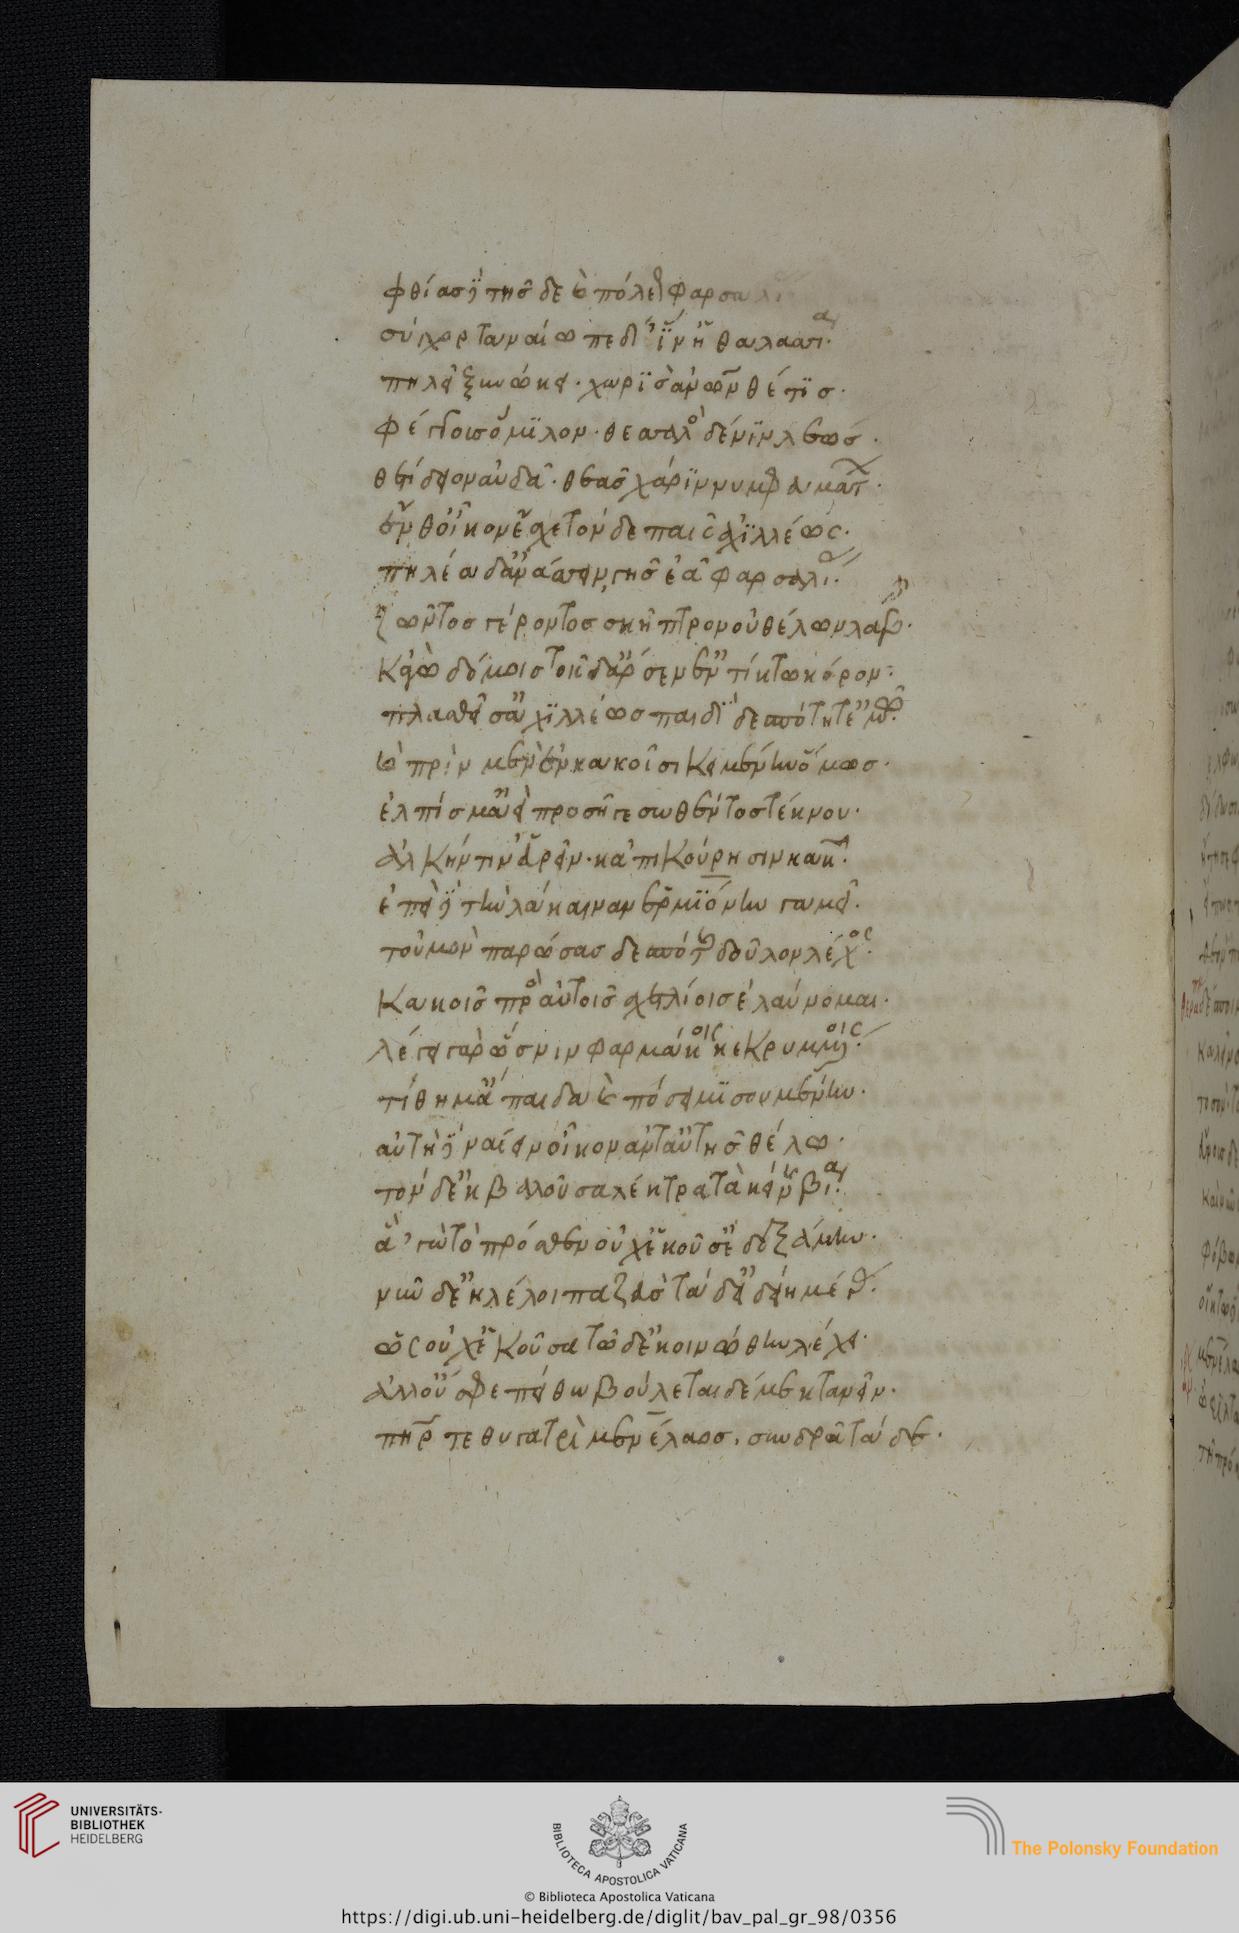 φθίας δὲ τῆσδε καὶ πόλεως φαρσαλίας
σύγχορτα ναίω πεδί' ἵν' ἡ θαλασσία
πηλεῖ ξυνώκει χωρὶς ἀνθρώπων θέτις
φεύγουσ' ὅμιλον· θεσσαλὸς δέ νιν λεὼς
θετίδειον αὐδᾷ θεᾶς χάριν νυμφευμάτων
ἔνθ' οἶκον ἔσχε τόνδε παῖς ἀχιλλέως·
πηλέα δ' ἀνάσσειν γῆς ἐᾷ φαρσαλίας
ζῶντος γέροντος σκῆπτρον οὐ θέλων λαβεῖν·
κἀγὼ δόμοις τοῖσδ' ἄρσεν' ἐντίκτω κόρον·
πλαθεῖσ' ἀχιλλέως παιδὶ δεσπότῃ τ' ἐμῷ
καὶ πρὶν μὲν ἐν κακοῖσι κειμένην ὅμως·
ἐλπίς μ' ἀεὶ προσῆγε σωθέντος τέκνου·
ἀλκήν τιν' εὑρεῖν κἀπικούρησιν κακῶν·
ἐπεὶ δὲ τὴν λάκαιναν ἑρμιόνην γαμεῖ·
τοὐμὸν παρώσας δεσπότης δοῦλον λέχος·
κακοῖς πρὸς αὐτῆς σχετλίοις ἐλαύνομαι·
λέγει γὰρ ὥς νιν φαρμάκοις κεκρυμμένοις·
τίθημ' ἄπαιδα καὶ πόσει μισουμένην·
αὐτὴ δὲ ναίειν οἶκον ἀντ' αὐτῆς θέλω·
τόνδ' ἐκβαλοῦσα λέκτρα τἀκείνης βίᾳ·
ἁγὼ τὸ πρόσθεν οὐχ ἑκοῦσ' ἐδεξάμην·
νῦν δ' ἐκλέλοιπα ζεὺς τάδ' εἰδείη μέγας
ὡς οὐχ ἑκοῦσα τῷδ' ἐκοινώθην λέχει·
ἀλλ' οὔ σφε πείθω βούλεται δέ με κτανεῖν·
πατήρ τε θυγατρὶ μενέλαος συνδρᾷ τάδε·
UNIVERSITÄTS-
BIBLIOTHEK
HEIDELBERG
BIBLIOTECA APOSTOLICA VATICANA
© Biblioteca Apostolica Vaticana
The Polonsky Foundation
https://digi.ub.uni-heidelberg.de/diglit/bav_pal_gr_98/0356